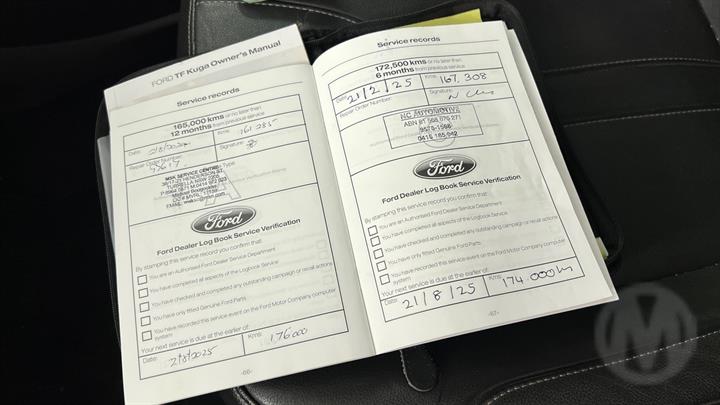 FORD TF Kuga Owner's Manual
Service records
165,000 kms or no later than
12 months from previous service
Date: 2/8/2024 Kms: 161 285
Repair Order Number: Signature:
MSK SERVICE CENTRE
TURRELLA NSW 2205
Ford
Ford Dealer Log Book Service Verification
By stamping this service record you confirm that:
You are an Authorised Ford Dealer Service Department
You have completed all aspects of the Logbook Service
You have checked and completed any outstanding campaign or recall actions
You have only fitted Genuine Ford Parts
You have recorded this service event on the Ford Motor Company computer
system
Your next service is due at the earlier of:
Date: 2/8/2025 Kms: 176000
-66-
Service records
172,500 kms or no later than
6 months from previous service
Date: 21/2/25 Kms: 167,308
Repair Order Number: Signature:
NC AUTOMOTIVE
ABN 81 568 876 271
Ford
Ford Dealer Log Book Service Verification
By stamping this service record you confirm that:
You are an Authorised Ford Dealer Service Department
You have completed all aspects of the Logbook Service
You have checked and completed any outstanding campaign or recall actions
You have only fitted Genuine Ford Parts
You have recorded this service event on the Ford Motor Company computer
system
Your next service is due at the earlier of:
Date: 21/8/25 Kms: 174.000km
-67-
M